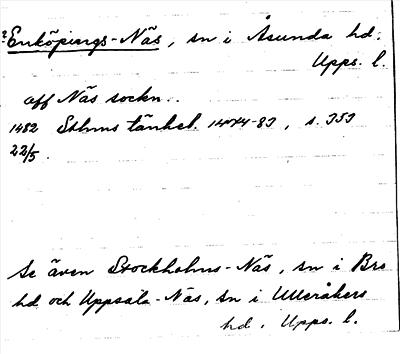 ? Enköpings-Näs, sn i Åsunda hd.
Upps. l.
aff Näs sockn..
1482 Sthms tänkeb. 1474-83, s. 353
22/5.
Se även Stockholms-Näs, sn i Bro
hd och Uppsala-Näs, sn i Ulleråkers
hd. Upps. l.